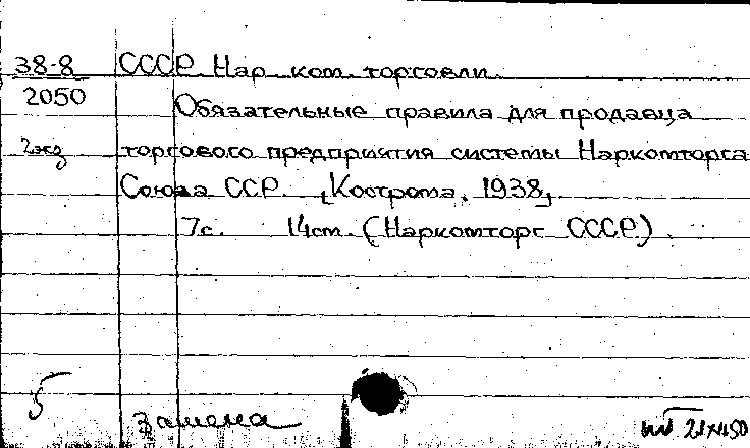 38-8 СССР. Нар. ком. торговли.
2050
Обязательные правила для продавца
2экз торгового предприятия системы Наркомторга
Союза ССР. [Кострома, 1938].
7с. 14см. (Наркомторг СССР).
5
Замена